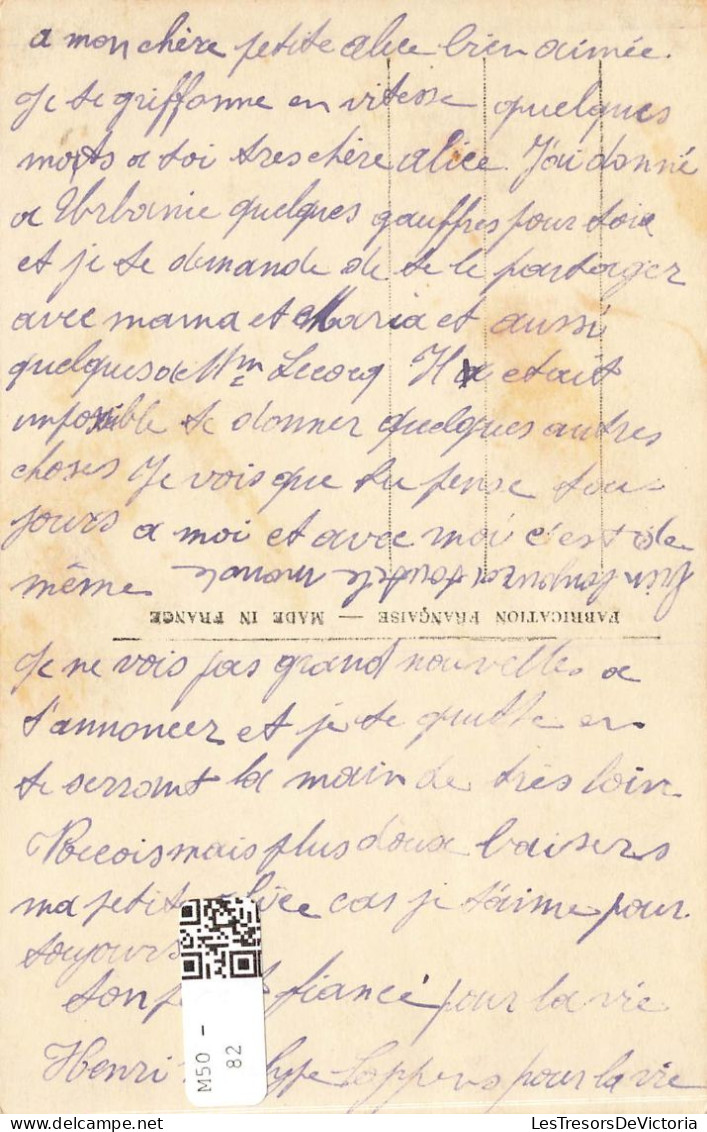 a mon chère petite alice bien aimée.
Je te griffonne en vitesse quelques
mots a toi tres chère alice. J'ai donné
a Urbanie quelques gauffres pour toi
et je te demande de te le partager
avec mama et Maria et aussi
quelques de Mme Lecocq Il etait
impossible te donner quelques autres
choses Je vois que tu pense tou-
jours a moi et avec moi c'est de
même
FABRICATION FRANÇAISE — MADE IN FRANCE
Je ne vois pas grand nouvelles a
t'annoncer et je te quitte en
te serrant la main de très loin
Recois mais plus doux baisers
ma petite alice car je t'aime pour
toujours
ton fiancé pour la vie
Henri Loppens pour la vie
M50 -
82
LesTresorsDeVictoria.com